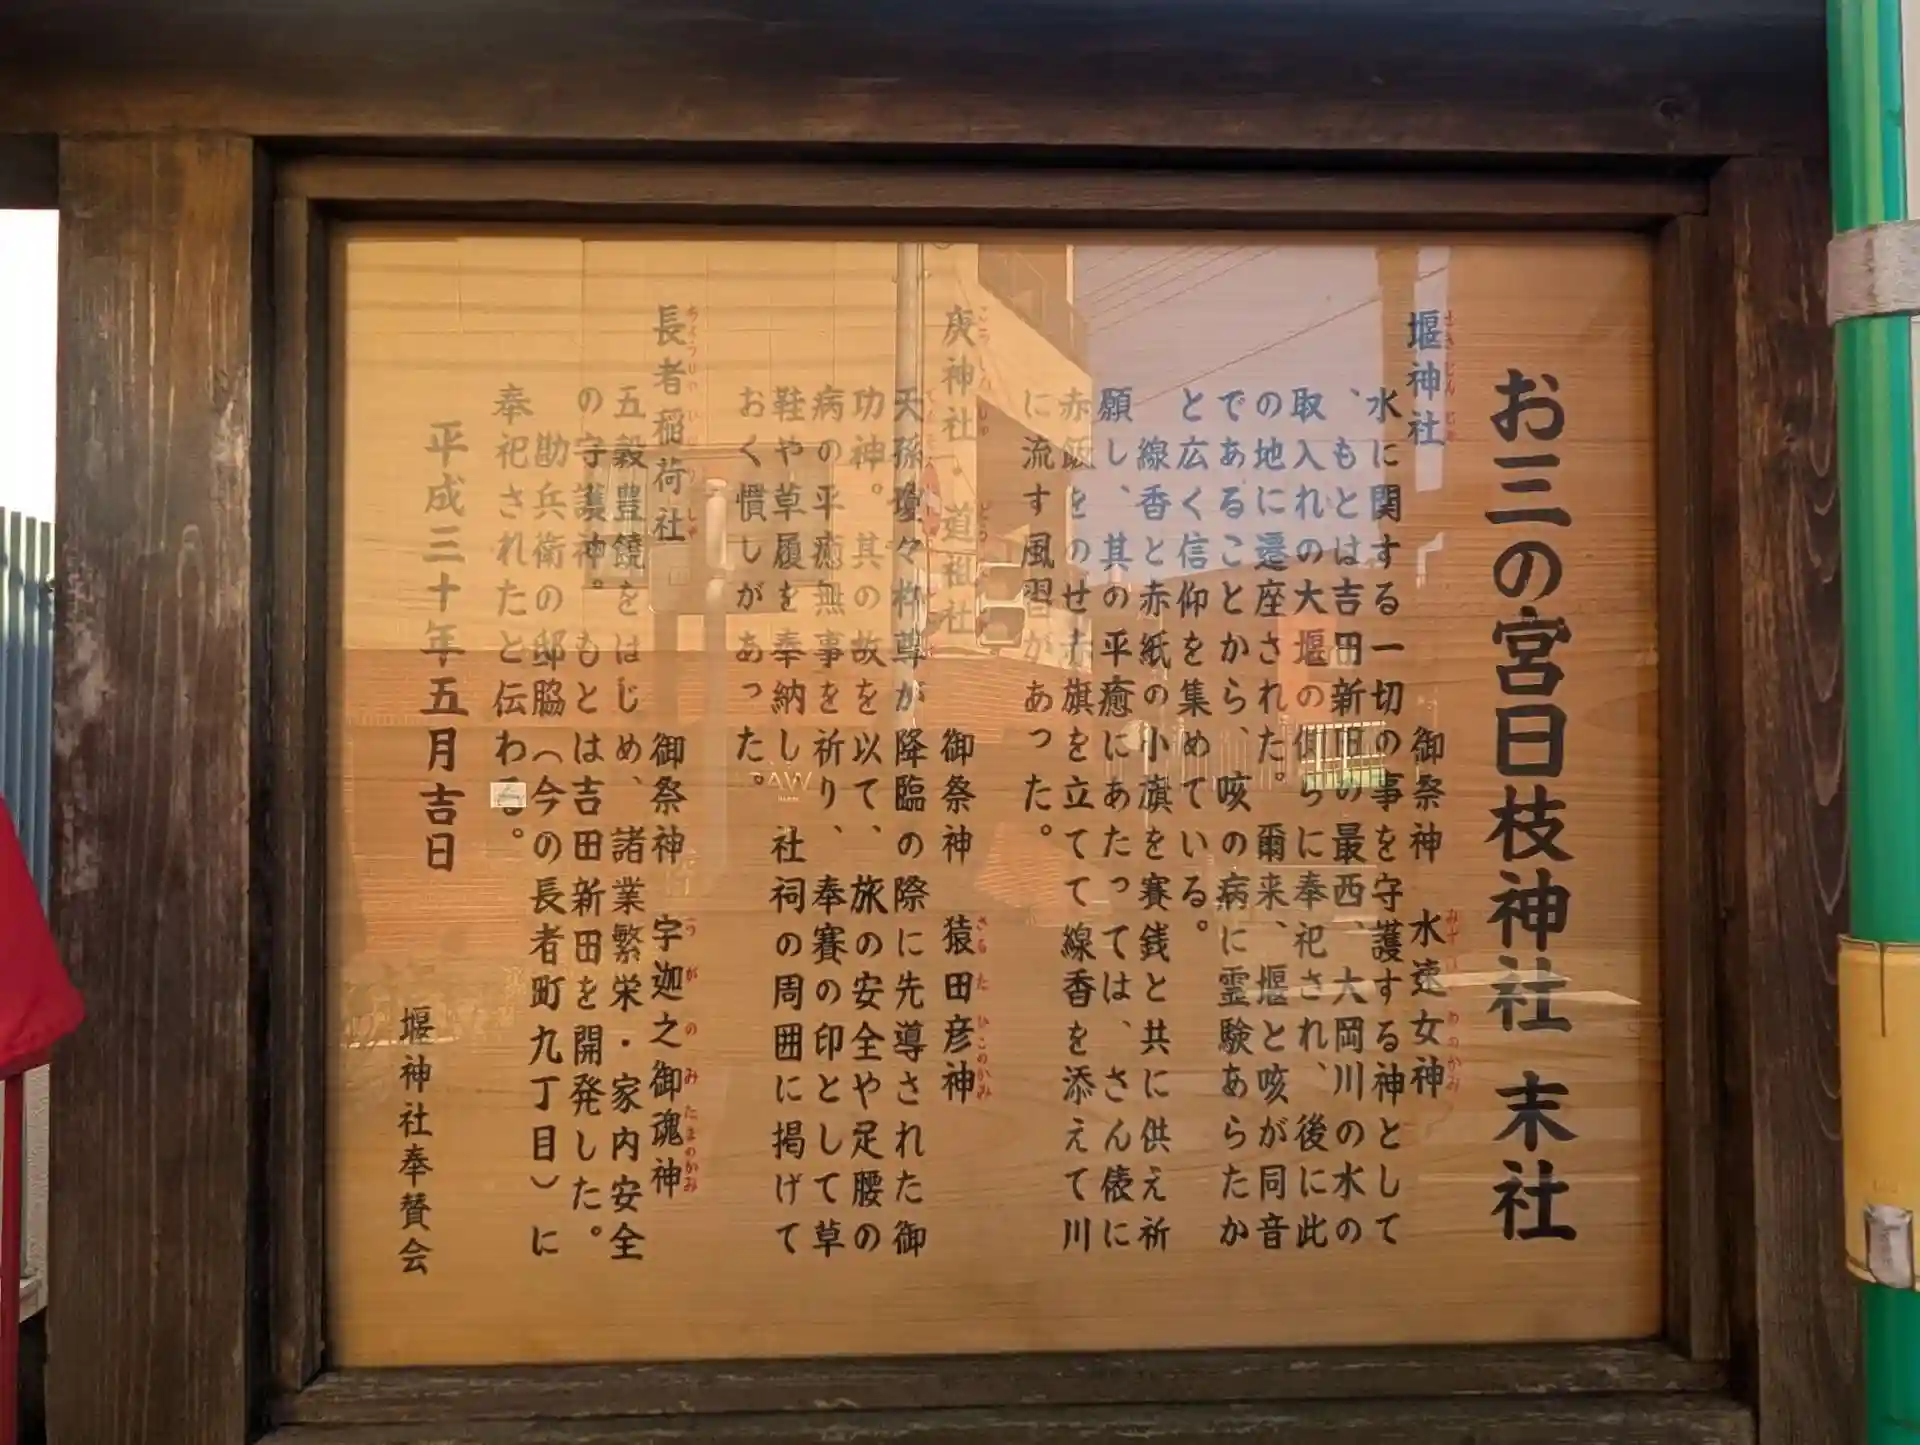 お三の宮日枝神社 末社
堰神社 御祭神 水速女神
水に関する一切の事を守護する神として
、もとは吉田新田の最西、大岡川の水の
取入れの大堰の側らに奉祀され、後に此
の地に遷座された。爾来、堰と咳が同音
であることから、咳の病に霊験あらたか
と広く信仰を集めている。
線香と赤紙の小旗を賽銭と共に供え祈
願し、其の平癒にあたっては、さん俵に
赤飯をのせ赤旗を立てて線香を添えて川
に流す風習があった。
庚神社・道祖社 御祭神 猿田彦神
天孫瓊々杵尊が降臨の際に先導された御
功神。其の故を以て、旅の安全や足腰の
病の平癒無事を祈り、奉賽の印として草
鞋や草履を奉納し、社祠の周囲に掲げて
おく慣しがあった。
長者稲荷社 御祭神 宇迦之御魂神
五穀豊饒をはじめ、諸業繁栄・家内安全
の守護神。もとは吉田新田を開発した。
勘兵衛の邸脇（今の長者町九丁目）に
奉祀されたと伝わる。
平成三十年五月吉日
堰神社奉賛会